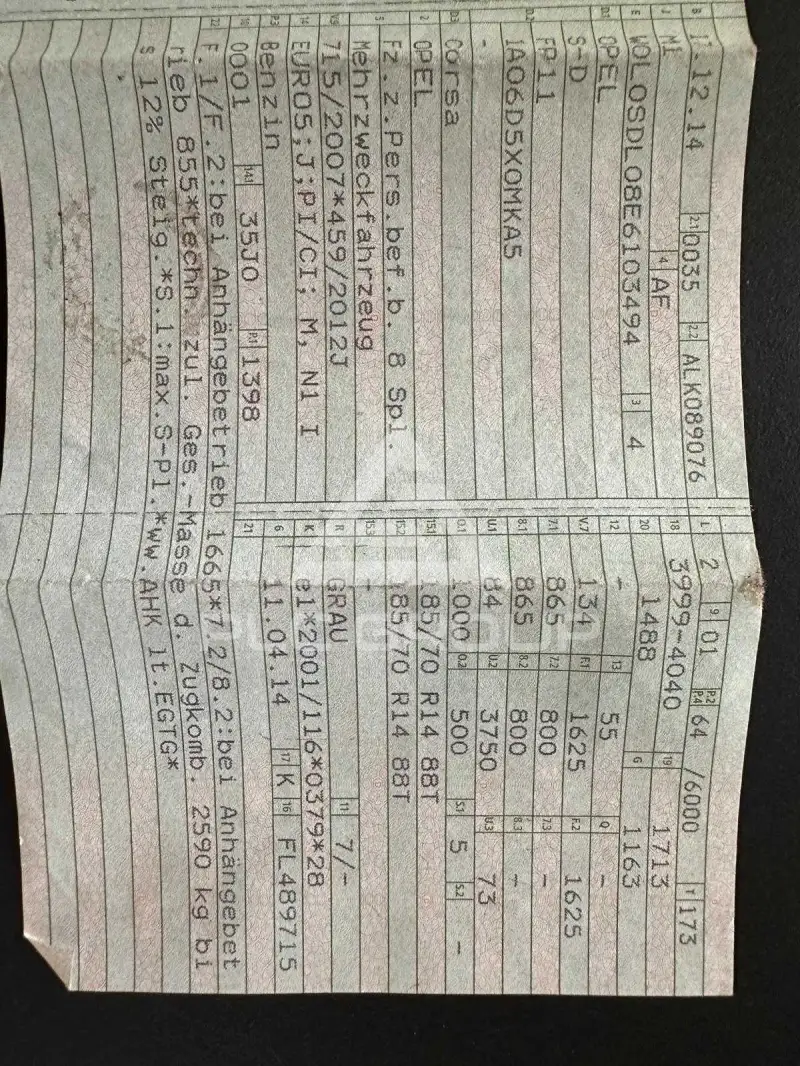 B 17.12.14 2.1 0035 2.2 ALK089076
J M1 4 AF
E W0L0SDL08E6103494 3 4
D.1 OPEL
S-D
FP11
D.2 1A06D5X0MKA5
-
D.3 Corsa
2 OPEL
5 Fz.z.Pers.bef.b. 8 Spl.
Mehrzweckfahrzeug
V.9 715/2007*459/2012J
14 EURO5;J;PI/CI; M, N1 I
P.3 Benzin
10 0001 14.1 35J0 P.1 1398
L 2 9 01 P.2 P.4 64 /6000 T 173
18 3999-4040 19 1713
20 1488 G 1163
12 - 13 55 Q -
V.7 134 F.1 1625 F.2 1625
7.1 865 7.2 800 7.3 -
8.1 865 8.2 800 8.3 -
U.1 84 U.2 3750 U.3 73
O.1 1000 O.2 500 S.1 5 S.2 -
15.1 185/70 R14 88T
15.2 185/70 R14 88T
15.3 -
R GRAU 11 7/-
K e1*2001/116*0379*28
6 11.04.14 17 K 16 FL489715
21
22 F.1/F.2:bei Anhängebetrieb 1665*7.2/8.2:bei Anhängebet
rieb 855*techn. zul. Ges.-Masse d. Zugkomb. 2590 kg bi
s 12% Steig.*S.1:max.S-Pl.*ww.AHK lt.EGTG*